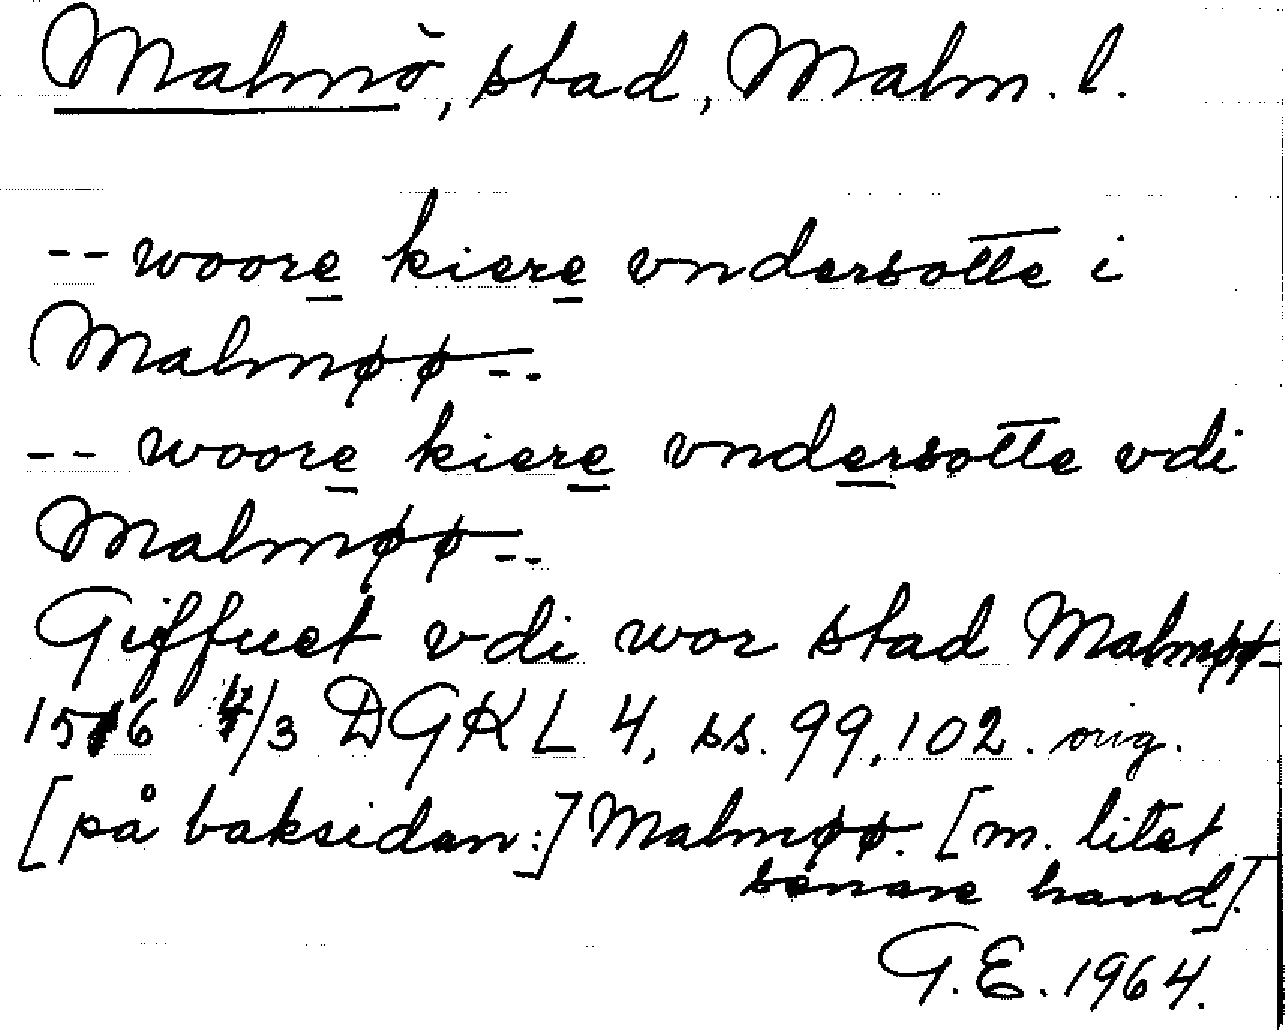 Malmö, stad, Malm. l.
-- woore kiere vndersotte i
Malmøø --
-- woore kiere vndersotte vdi
Malmøø --
Giffuet vdi wor stad Malmøø
1516 4/3 DGKL 4, ss. 99, 102. orig.
[på baksidan:] Malmøø. [m. litet
senare hand].
G.E. 1964.